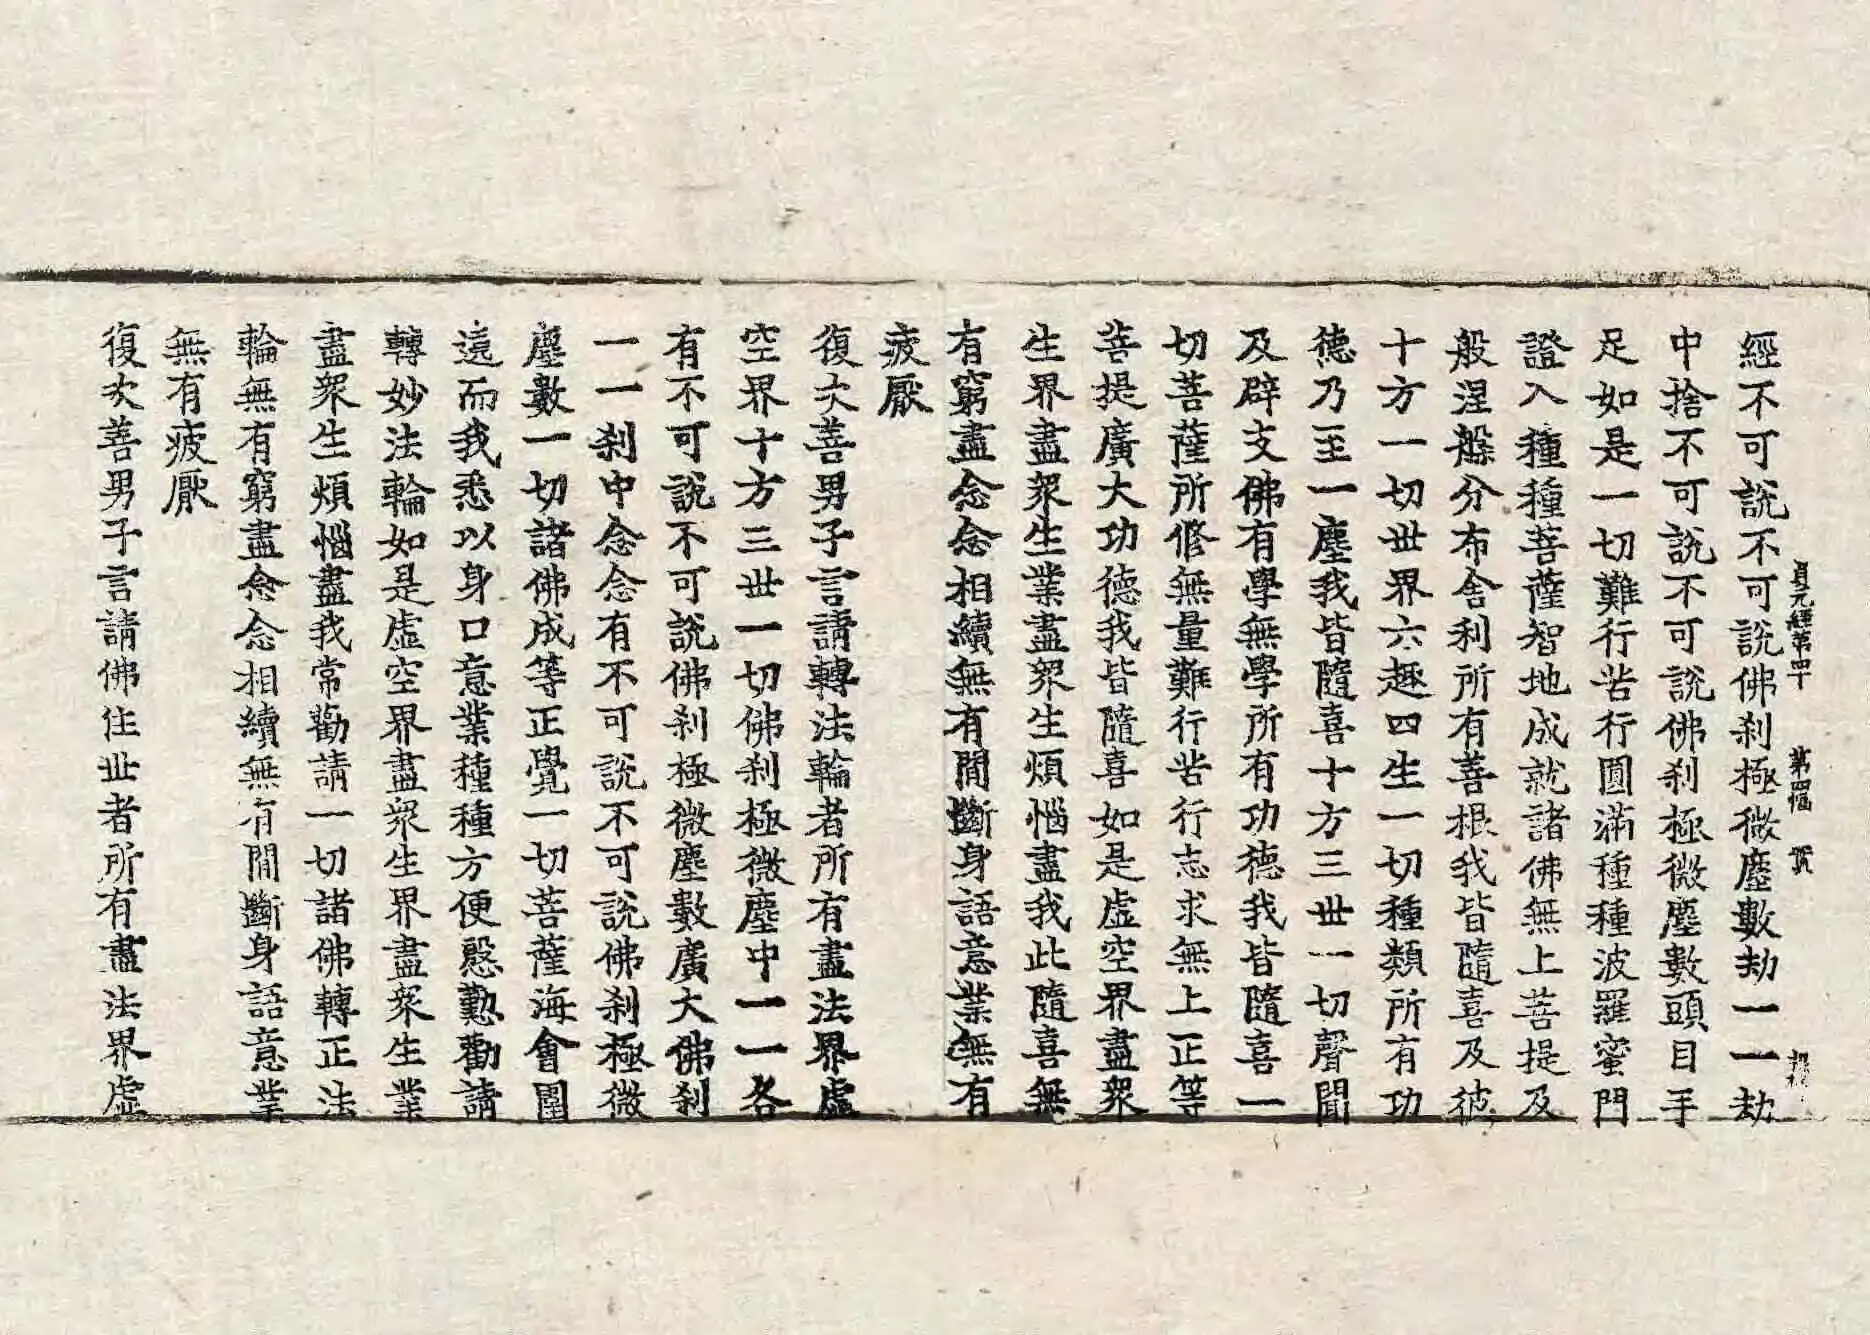 貞元經第四十 第四幅 號
經不可說不可說佛刹極微塵數劫一一劫
中捨不可說不可說佛刹極微塵數頭目手
足如是一切難行苦行圓滿種種波羅蜜門
證入種種菩薩智地成就諸佛無上菩提及
般涅槃分布舍利所有善根我皆隨喜及彼
十方一切世界六趣四生一切種類所有功
德乃至一塵我皆隨喜十方三世一切聲聞
及辟支佛有學無學所有功德我皆隨喜一
切菩薩所修無量難行苦行志求無上正等
菩提廣大功德我皆隨喜如是虛空界盡衆
生界盡衆生業盡衆生煩惱盡我此隨喜無
有窮盡念念相續無有間斷身語意業無有
疲厭
復次善男子言請轉法輪者所有盡法界虛
空界十方三世一切佛刹極微塵中一一各
有不可說不可說佛刹極微塵數廣大佛刹
一一刹中念念有不可說不可說佛刹極微
塵數一切諸佛成等正覺一切菩薩海會圍
遶而我悉以身口意業種種方便慇懃勸請
轉妙法輪如是虛空界盡衆生界盡衆生業
盡衆生煩惱盡我常勸請一切諸佛轉正法
輪無有窮盡念念相續無有間斷身語意業
無有疲厭
復次善男子言請佛住世者所有盡法界虛